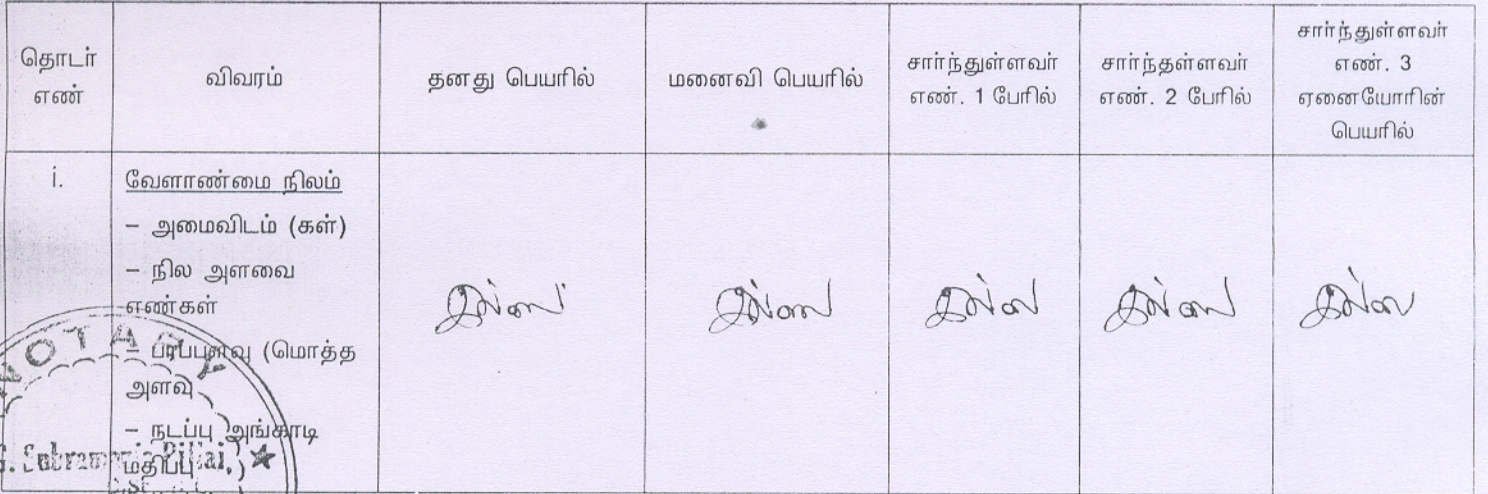 தொடர் எண்
விவரம்
தனது பெயரில்
மனைவி பெயரில்
சார்ந்துள்ளவர் எண். 1 பேரில்
சார்ந்தள்ளவர் எண். 2 பேரில்
சார்ந்துள்ளவர் எண். 3 ஏனையோரின் பெயரில்
i.
வேளாண்மை நிலம்
– அமைவிடம் (கள்)
– நில அளவை
எண்கள்
– பரப்பளவு (மொத்த
அளவு
– நடப்பு அங்காடி
மதிப்பு
இல்லை இல்லை இல்லை இல்லை இல்லை
NOTARY
G. Subramania Pillai,